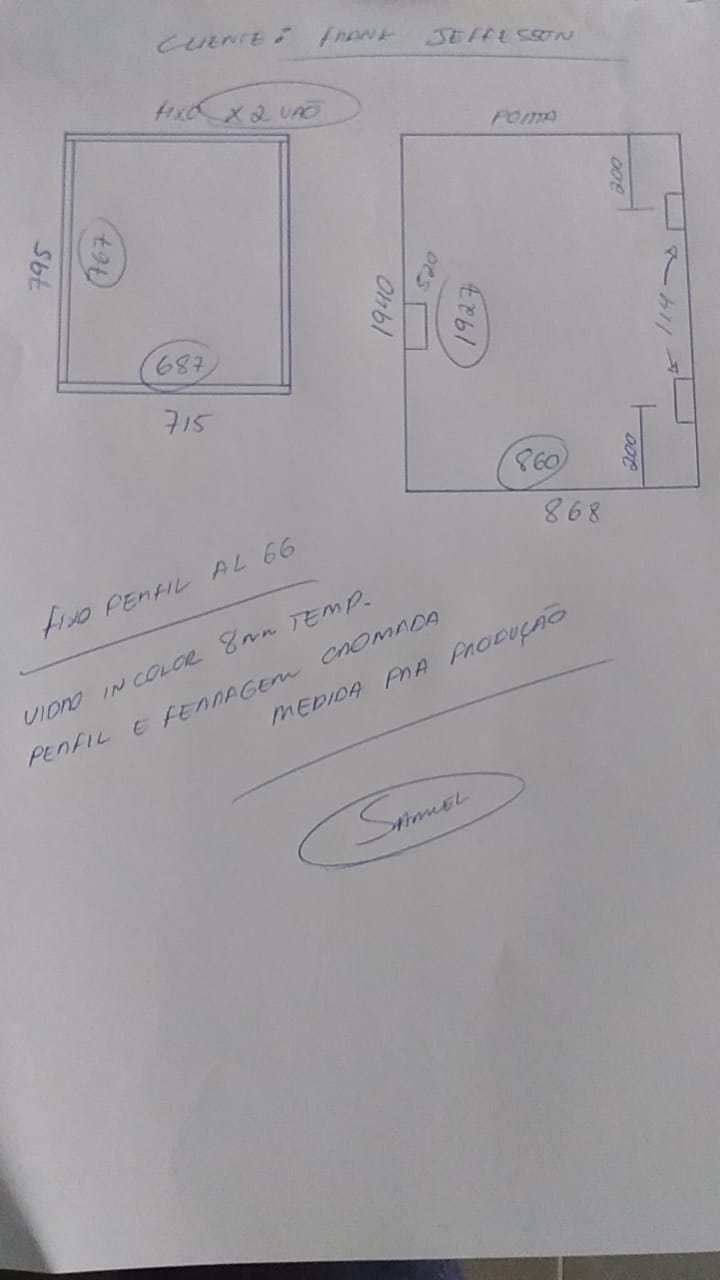 CLIENTE: FRANK JEFFESSON
FIXO X 2 VÃO
795
767
687
715
PORTA
200
1940
520
1927
114
200
860
868
FIXO PERFIL AL 66
VIDRO INCOLOR 8mm TEMP.
PERFIL E FERRAGEM CROMADA
MEDIDA PRA PRODUÇÃO
SAMUEL